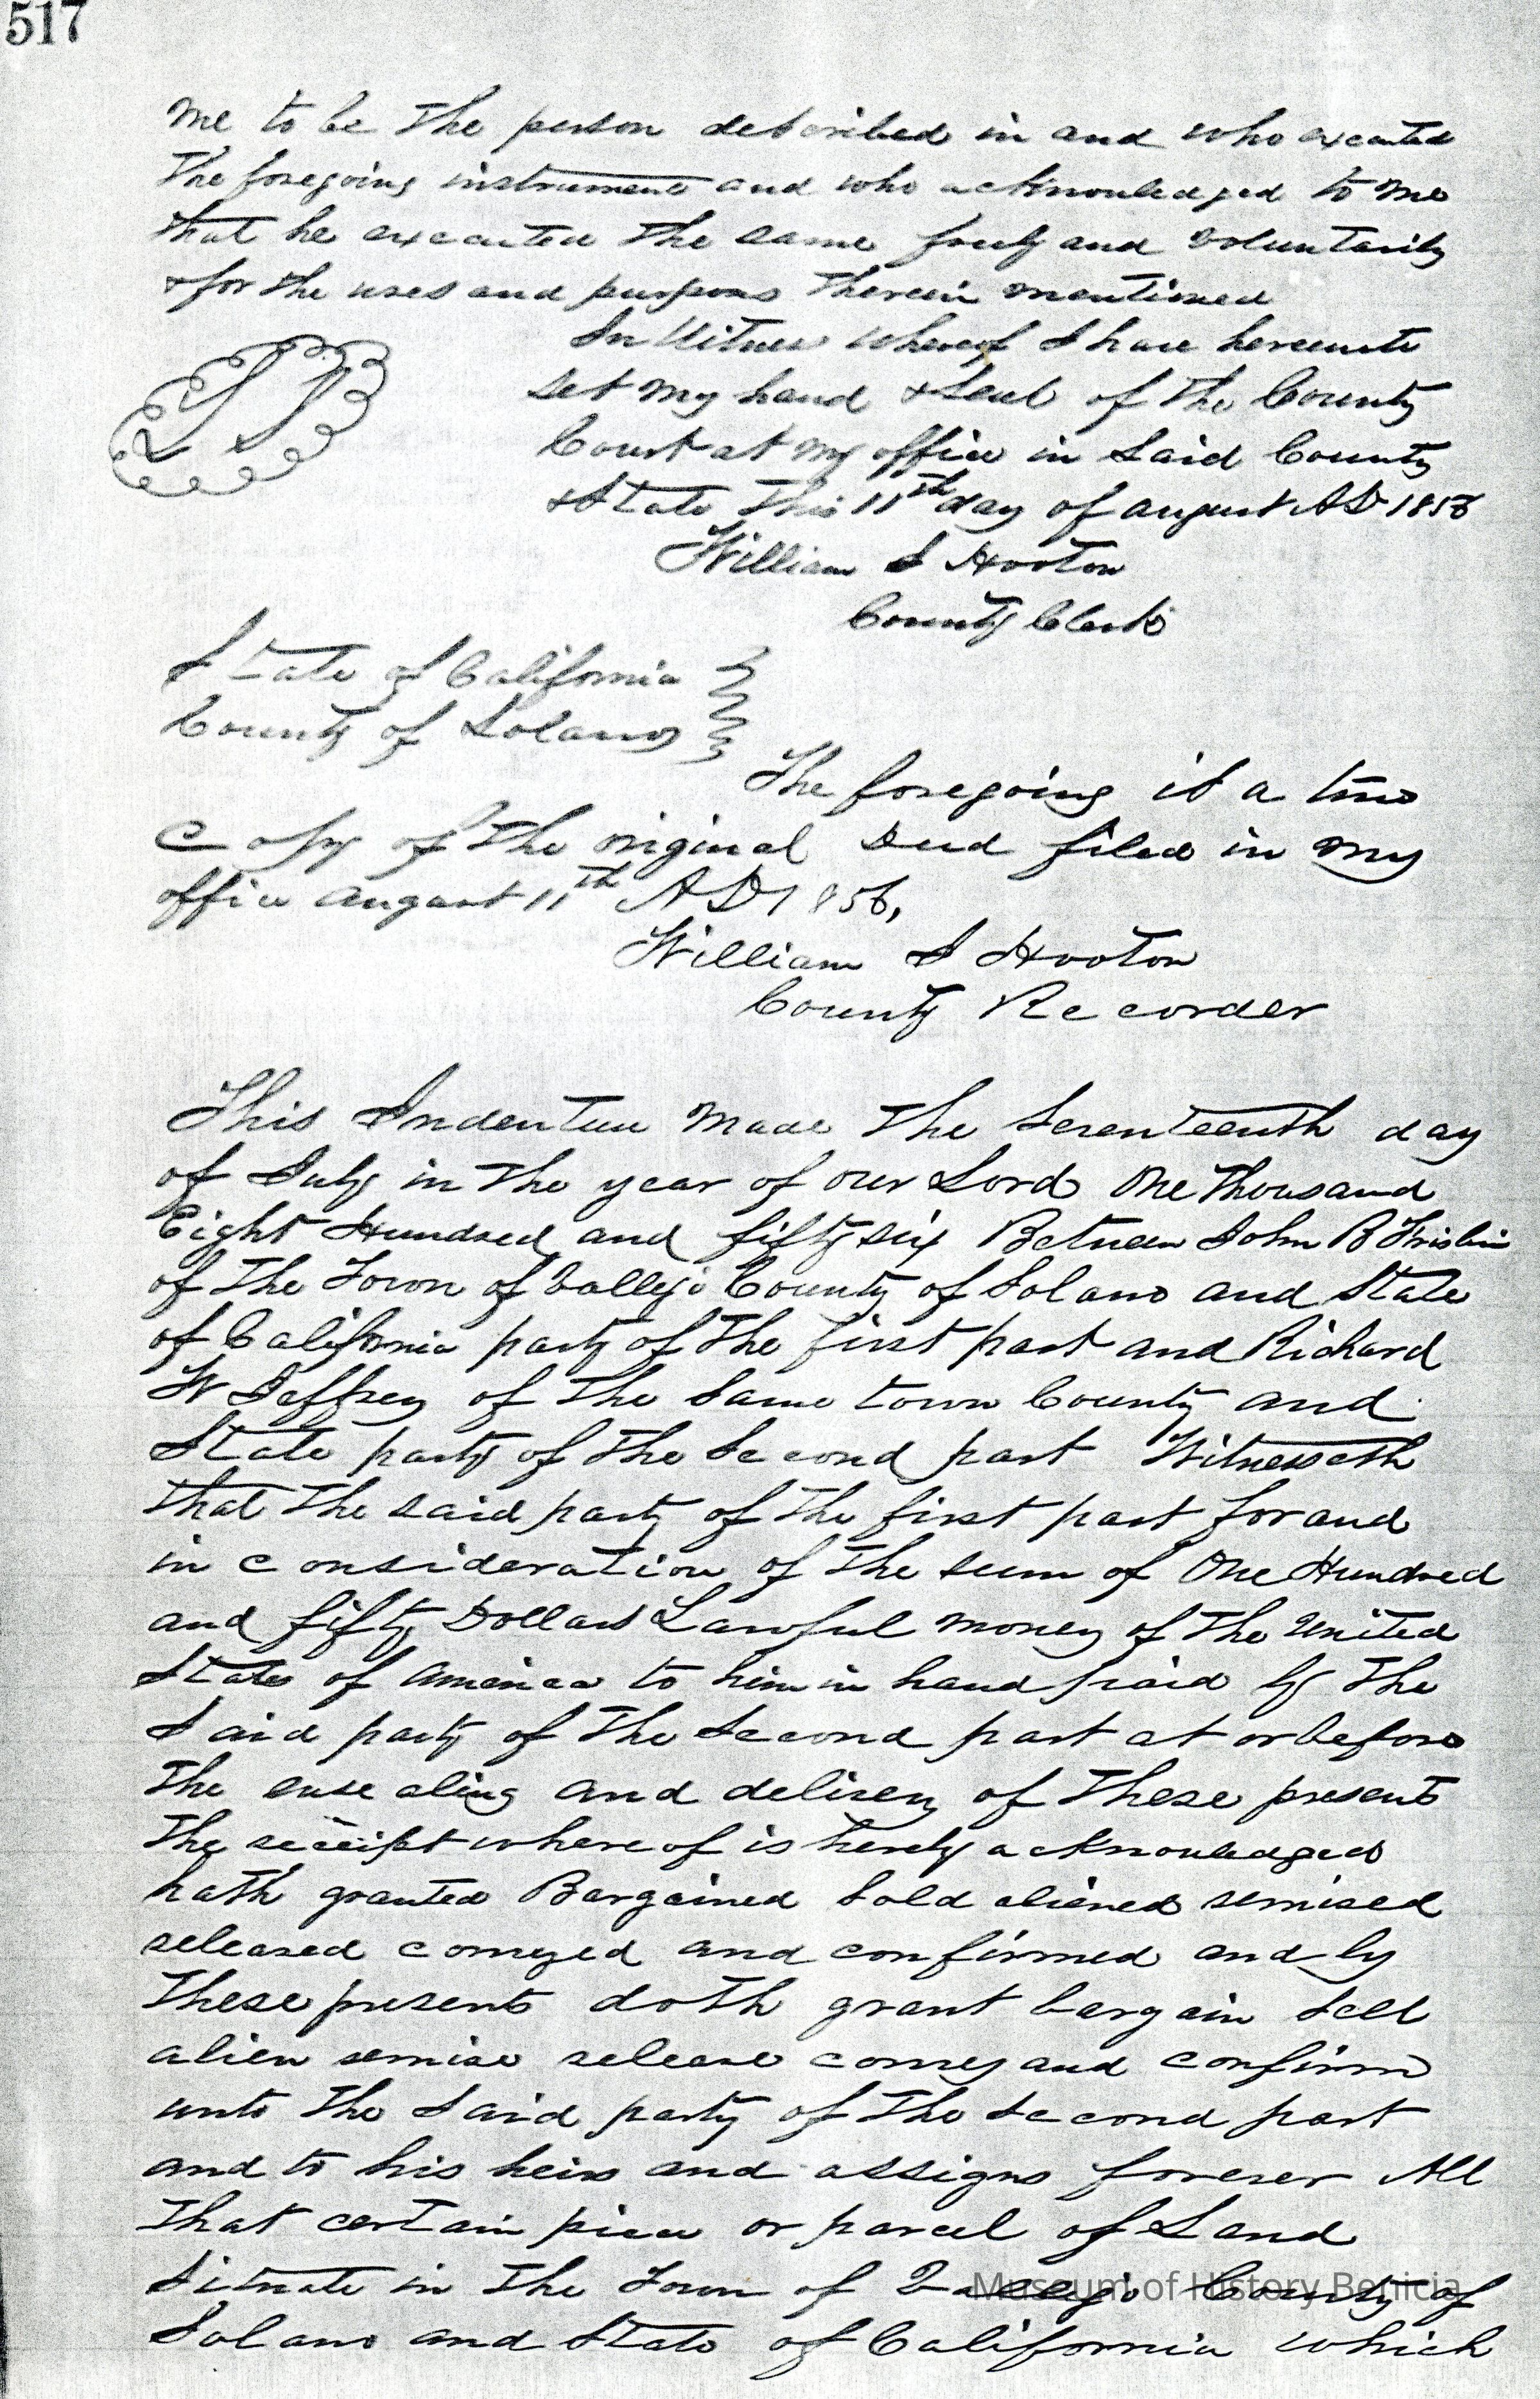 517
me to be the person described in and who executed
the foregoing instrument and who acknowledged to me
that he executed the same freely and voluntarily
& for the uses and purposes therein mentioned
In Witness whereof I have hereunto
set my hand & seal of the County
Court at my office in said County
& State this 11th day of August AD 1856
William S Hooton
County Clerk
State of California
County of Solano
The foregoing is a true
Copy of the original Deed filed in my
office August 11th AD 1856,
William S Hooton
County Recorder
This Indenture made the seventeenth day
of July in the year of our Lord One thousand
Eight Hundred and fifty six Between John B Frisbie
of the Town of Vallejo County of Solano and State
of California party of the first part and Richard
W Jeffrey of the same town County and
State party of the second part Witnesseth
that the said party of the first part for and
in consideration of the sum of One Hundred
and fifty Dollars Lawful money of the United
States of America to him in hand paid by the
Said party of the second part at or before
the ensealing and delivery of these presents
the receipt where of is hereby acknowledged
hath granted Bargained Sold aliened remised
released conveyed and confirmed and by
these presents doth grant bargain sell
alien remise release convey and confirm
unto the said party of the second part
and to his heirs and assigns forever All
that certain piece or parcel of Land
Situate in the Town of Vallejo County of
Solano and State of California which
Museum of History Benicia